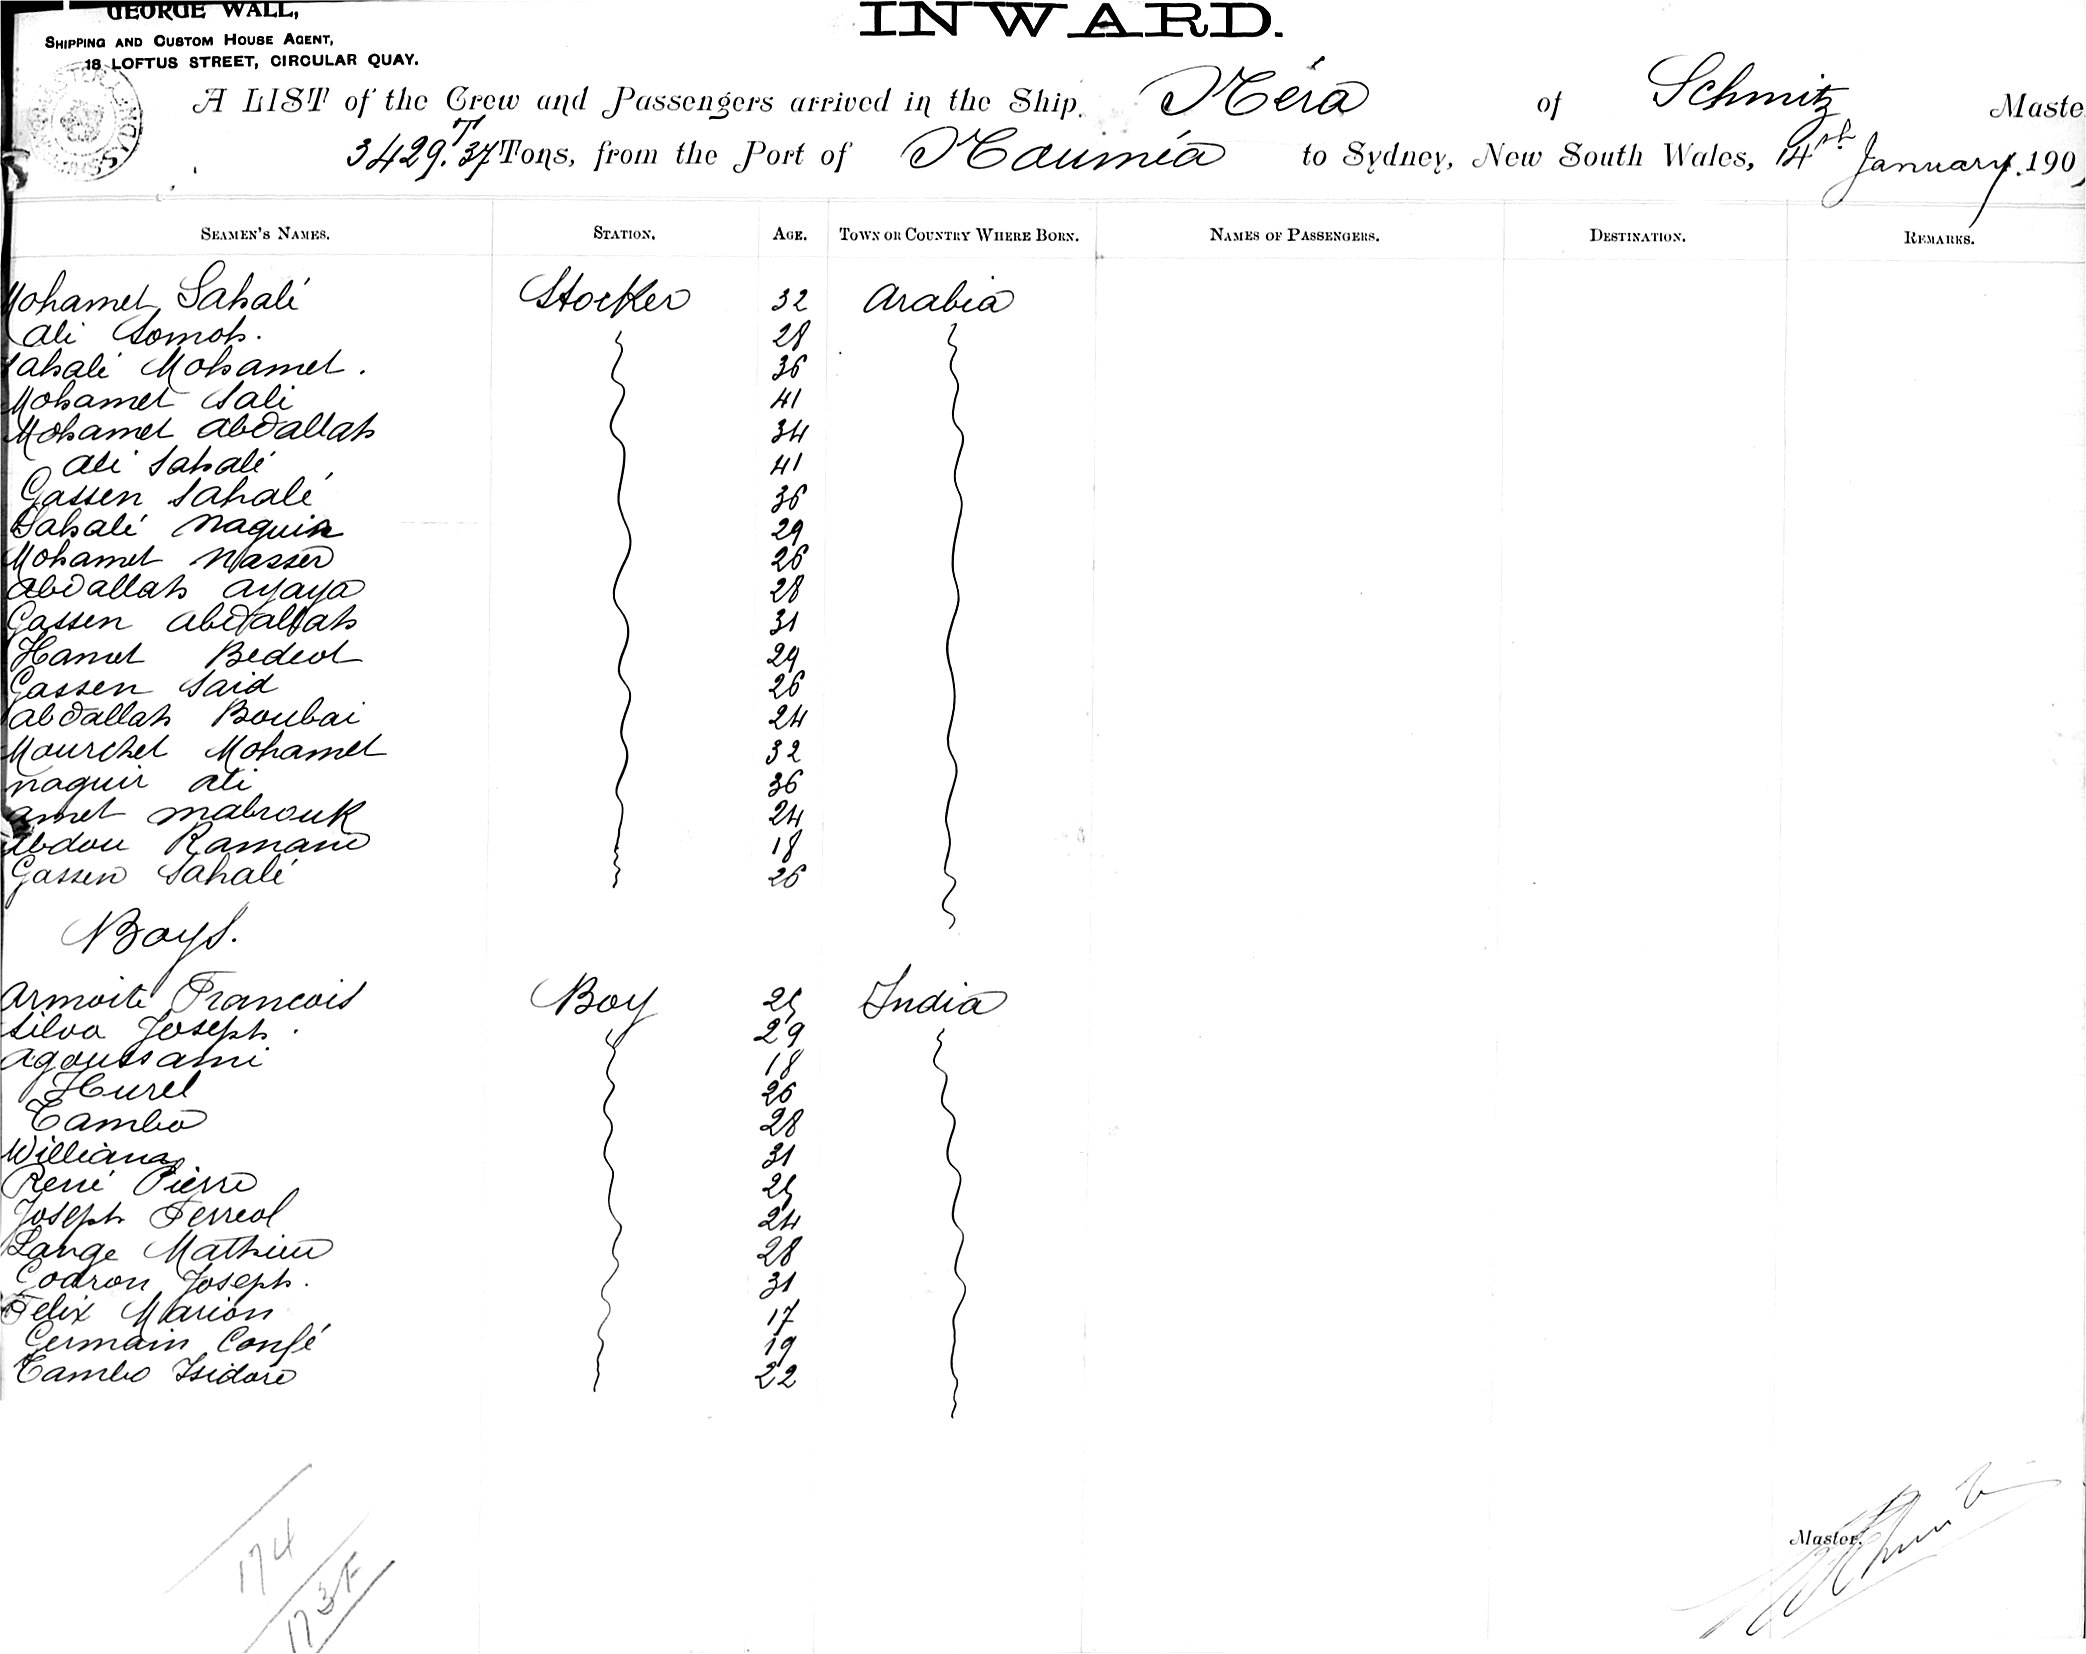 GEORGE WALL,
SHIPPING AND CUSTOM HOUSE AGENT,
18 LOFTUS STREET, CIRCULAR QUAY.
INWARD.
A LIST of the Crew and Passengers arrived in the Ship. Néra of Schmitz Maste
3429.37 Tons, from the Port of Nouméa to Sydney, New South Wales, January. 190
SEAMEN'S NAMES. STATION. AGE. TOWN OR COUNTRY WHERE BORN. NAMES OF PASSENGERS. DESTINATION. REMARKS.
Mohamet Sahalé Stocker 32 Arabia
Ali Somoh. 28
Sahalé Mohamet. 36
Mohamet Sali 41
Mohamet Abdallah 34
Ali Sahalé 41
Gassen Sahalé 36
Sahalé 29
Mohamet Nasser 26
Abdallah Ayaya 28
Gassen Abdallah 31
Hamet Bedeol 29
Gassen Said 26
Abdallah Boubai 24
Mourchet Mohamet 32
Naguir Ali 36
Amet Mabrouk 24
Abdou Ramane 18
Gassen Sahalé 26
Boys.
Armoite Francois Boy 25 India
Silva Joseph. 29
Agoussami 18
Hurel 26
Tambo 28
Williams 31
René Pierre 25
Joseph Ferreol 24
Lange Mathieu 28
Codron Joseph. 31
Felix Marion 17
Germain Confé 19
Tambo Isidore 22
174
173F
Master.